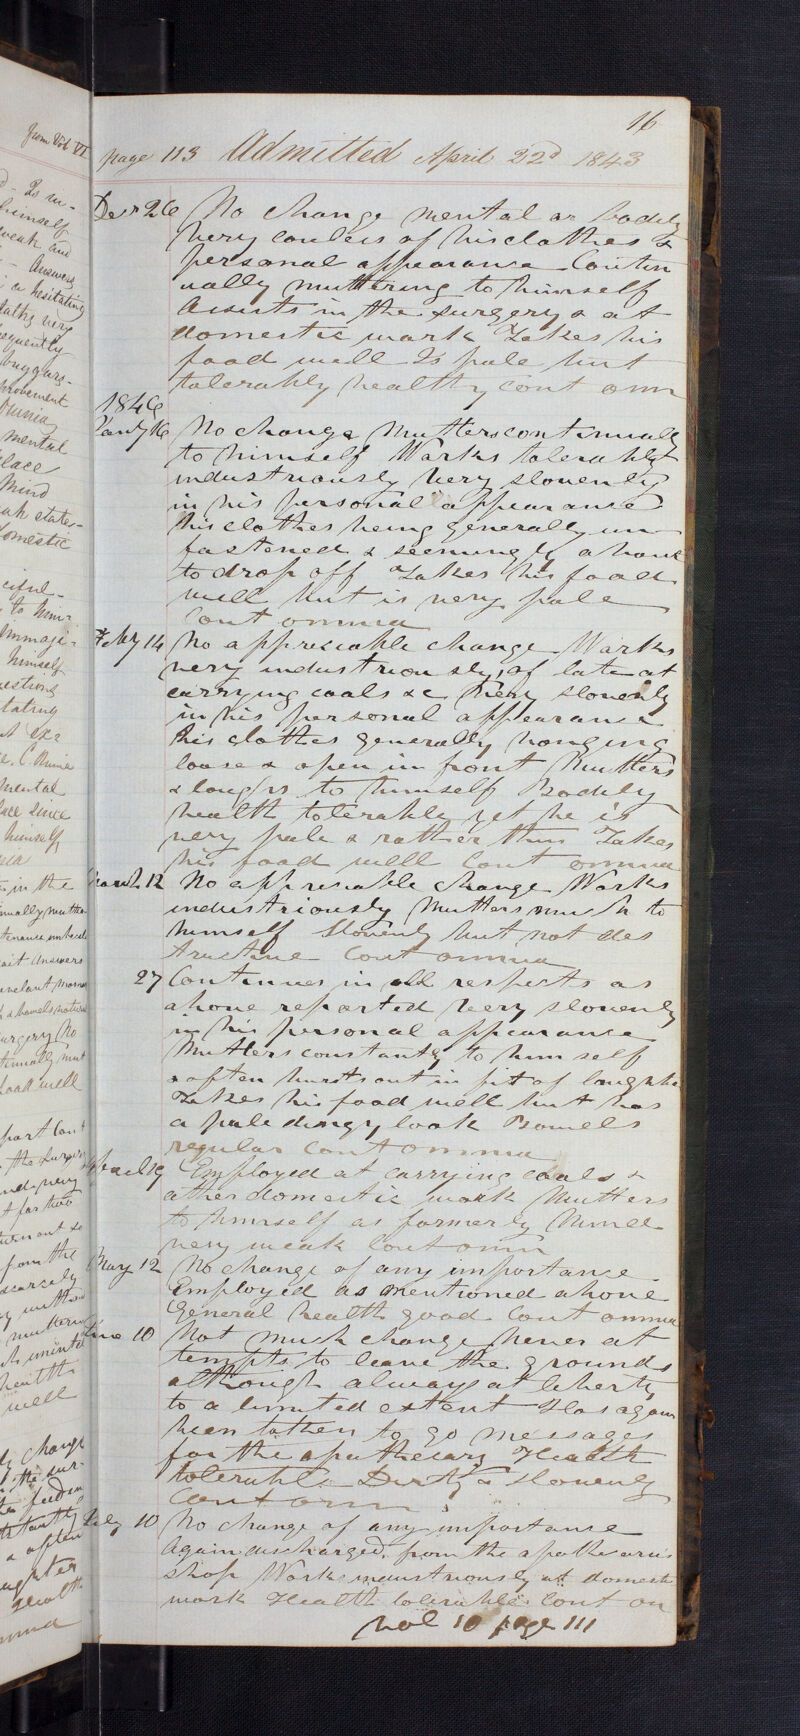 16
page 113 Admitted April 22d 1843
Decr 26 No change mental or bodily
Very careless of his clothes &
personal appearance Contin
ually muttering to himself
Assists in the surgery & at
domestic work Takes his
food well Is pale but
tolerably healthy Cont omn
1846
Jany 16 No change Mutters continually
to himself Works tolerably
industriously Very slovenly
in his personal appearance
his clothes being generally un
fastened & seemingly about
to drop off Takes his food
well but is very pale
Cont omnia
Feby 14 No appreciable change Works
very industriously, of late at
carrying coals &c Very slovenly
in his personal appearance
his clothes generally hanging
loose & open in front Mutters
& laughs to himself Bodily
health tolerable yet he is
very pale & rather thin Takes
his food well Cont omnia
March 12 No appreciable change Works
industriously Mutters much to
himself Slovenly but not des
tructive Cont omnia
27 Continues in all respects as
above reported Very slovenly
in his personal appearance
Mutters constantly to him self
& often bursts out in fit of laughter
Takes his food well but has
a pale dingy look Bowels
regular Cont omnia
April 19 Employed at carrying coals &
other domestic work Mutters
to himself as formerly Mind
very weak Cont omn
May 12 No change of any importance
Employed as mentioned above
General health good Cont omnia
June 10 Not much change never at
tempts to leave the grounds
although always at liberty
to a limited extent Has again
been taken to go messages
for the apothecary Health
tolerable Dirty & slovenly
Cont omn
July 10 No change of any importance
Again discharged from the apothecaries
shop Works industriously at domestic
work Health tolerable Cont on
vol 10 page 111